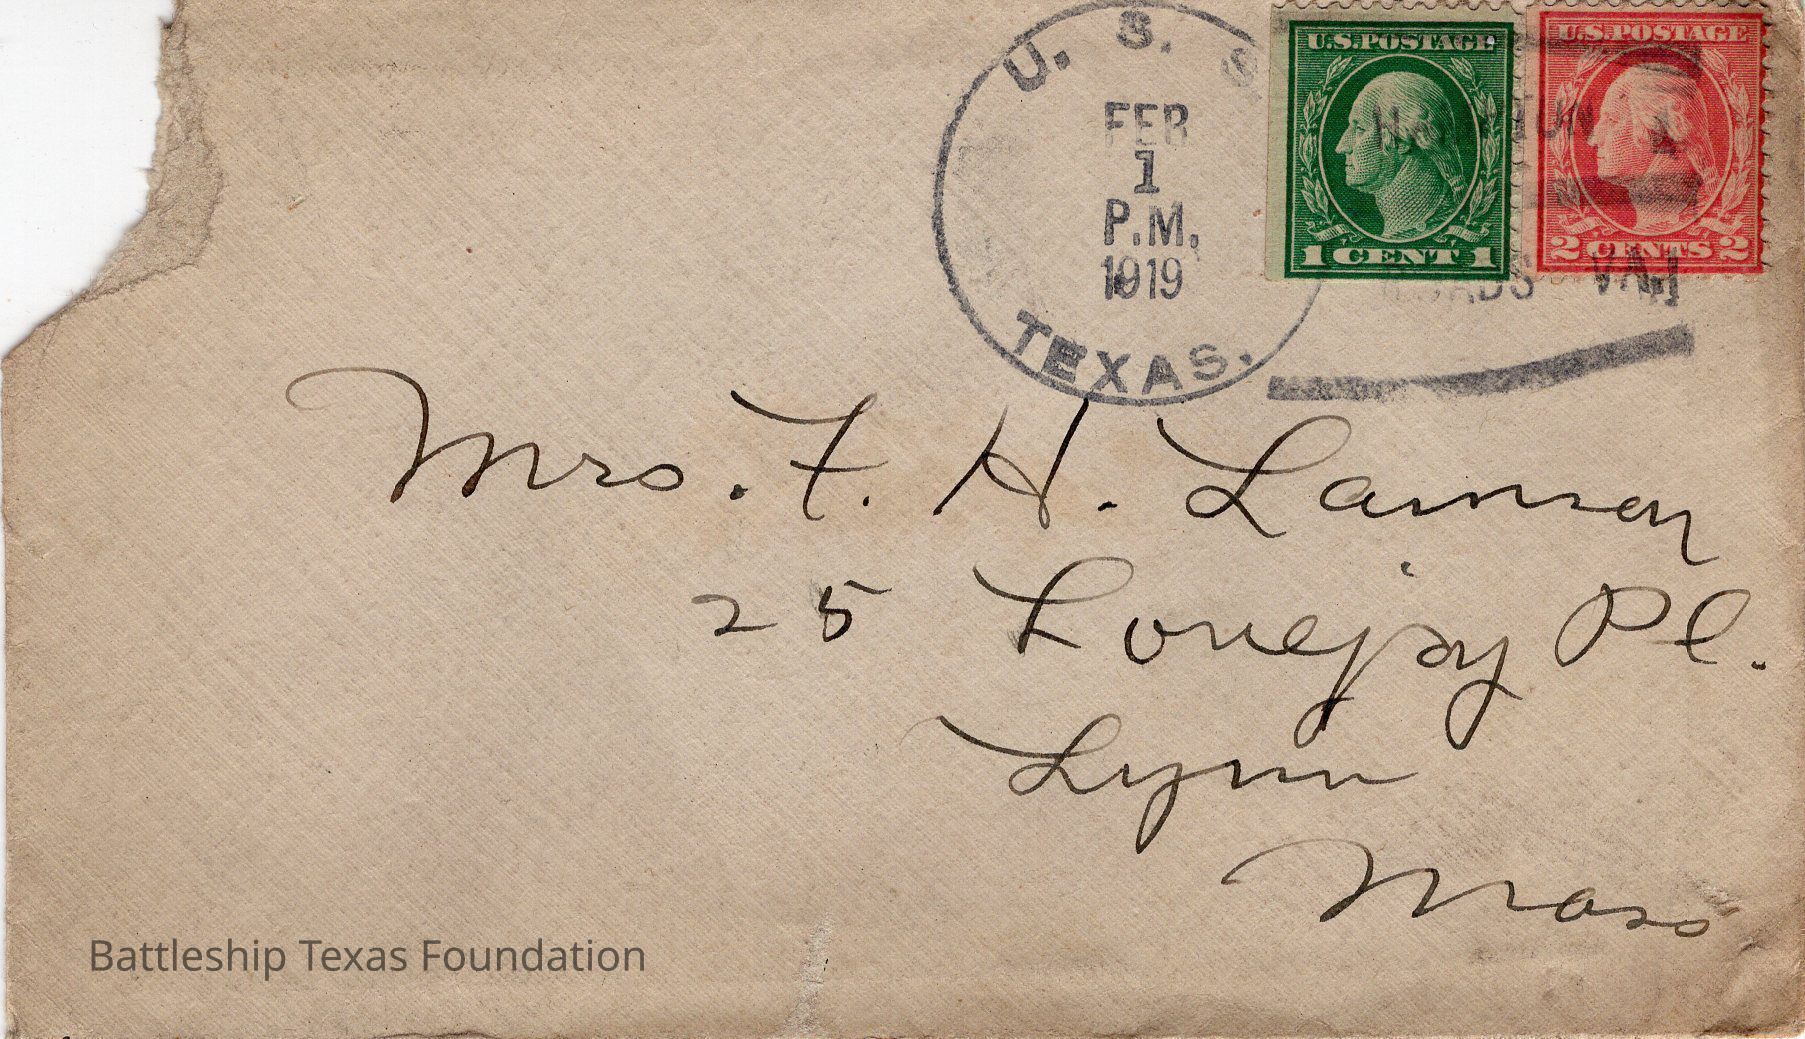 U. S. S.
FEB
1
P.M.
1919
TEXAS.
U.S.POSTAGE
1 CENT 1
U.S.POSTAGE
2 CENTS 2
VA.
Mrs. F. H.
25 Lovejoy Pl.
Lynn
Mass
Battleship Texas Foundation